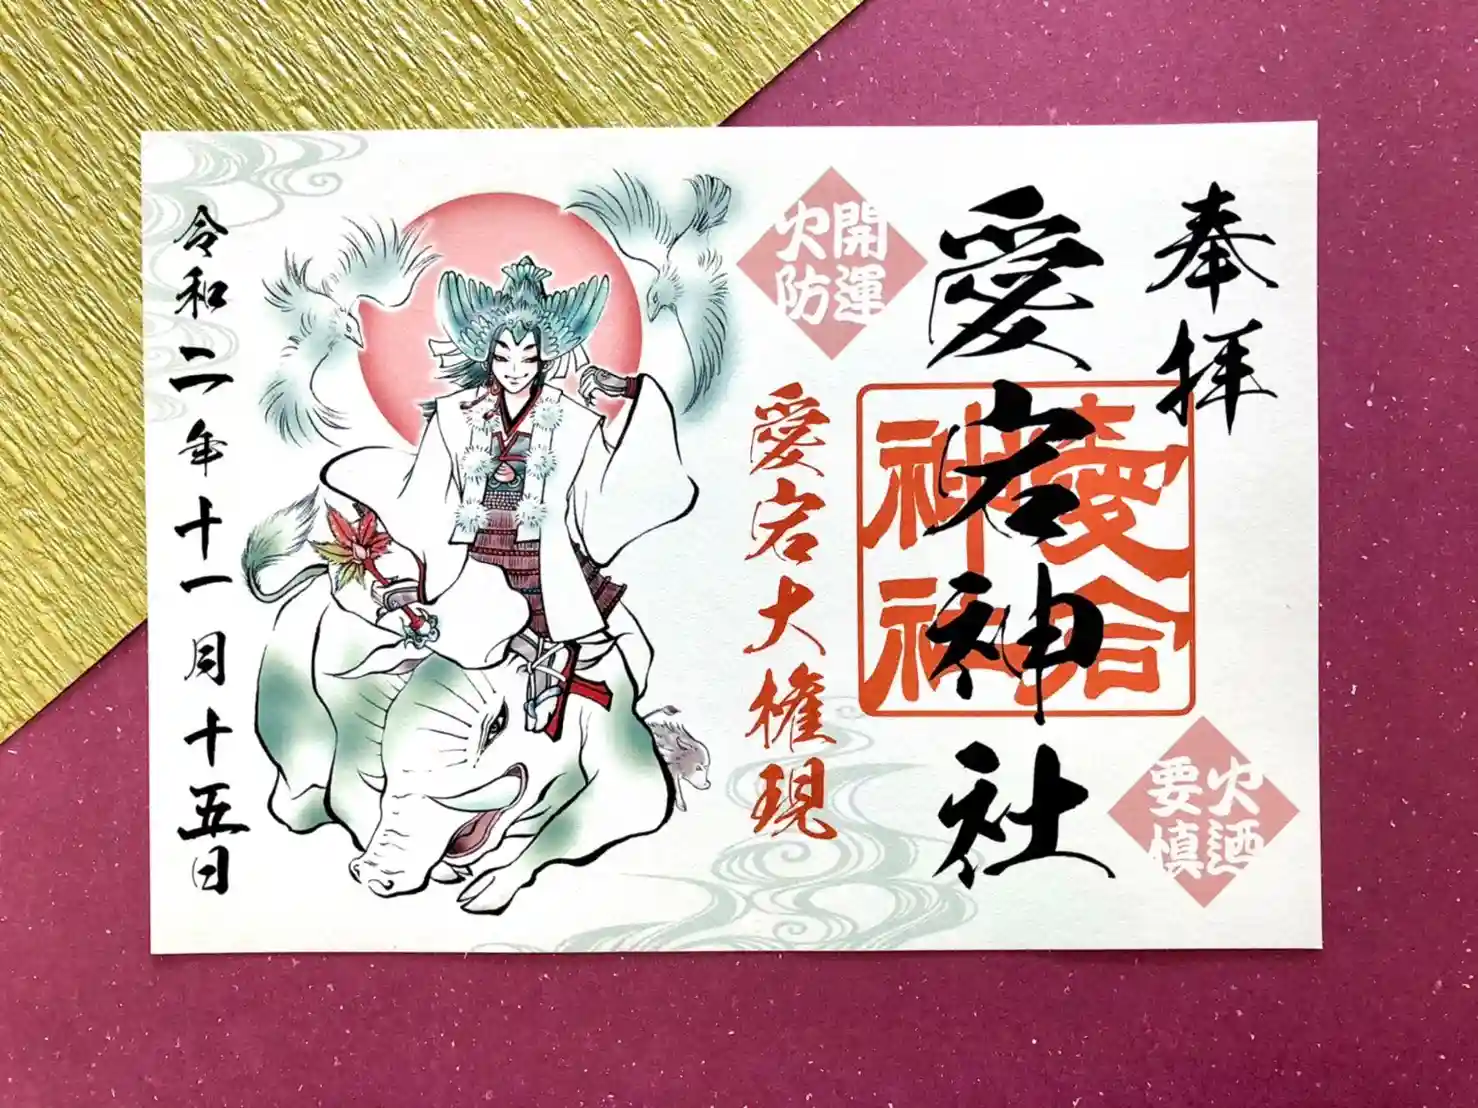 奉拝
愛宕神社
愛宕神社
開運
火防
火廼
要慎
愛宕大権現
令和二年十一月十五日